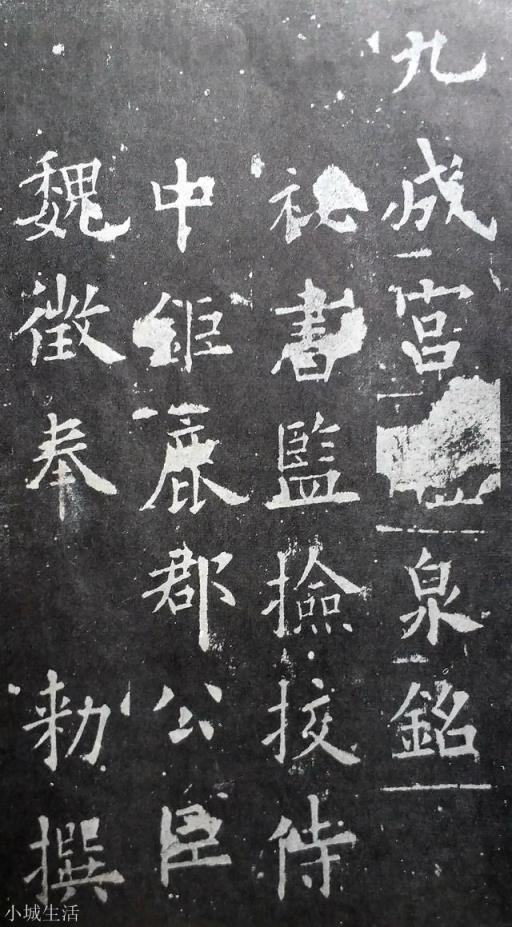 九成宮泉銘
祕書監撿挍侍
中鉅鹿郡公臣
魏徵奉 勑撰
小城生活